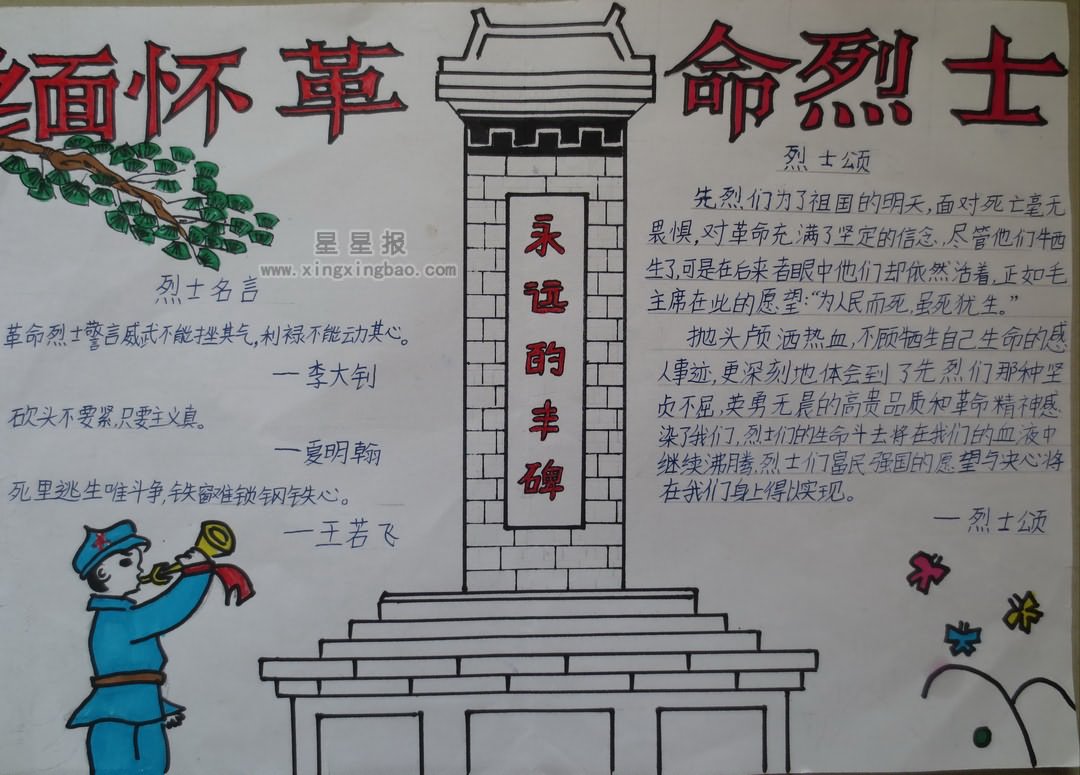 缅怀革命烈士
星星报
www.xingxingbao.com
烈士名言
革命烈士警言威武不能挫其气，利禄不能动其心。
—李大钊
砍头不要紧，只要主义真。
—夏明翰
死里逃生唯斗争，铁窗难锁钢铁心。
—王若飞
永远的丰碑
烈士颂
先烈们为了祖国的明天，面对死亡毫无
畏惧，对革命充满了坚定的信念，尽管他们牺
生了，可是在后来者眼中他们却依然活着，正如毛
主席在此的愿望：“为人民而死，虽死犹生。”
抛头颅洒热血，不顾牺生自己生命的感
人事迹，更深刻地体会到了先烈们那种坚
贞不屈，英勇无晨的高贵品质和革命精神感
染了我们，烈士们的生命斗去将在我们的血液中
继续沸腾，烈士们富民强国的愿望与决心将
在我们身上得以实现。
—烈士颂